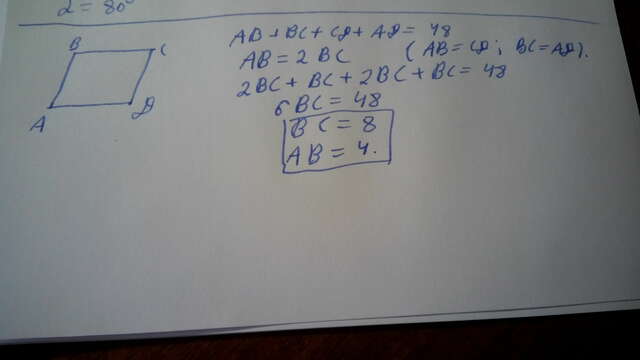 α = 80°
B
C
A
D
AB + BC + CD + AD = 48
AB = 2 BC ( AB = CD ; BC = AD ).
2BC + BC + 2BC + BC = 48
6 BC = 48
BC = 8
AB = 4.